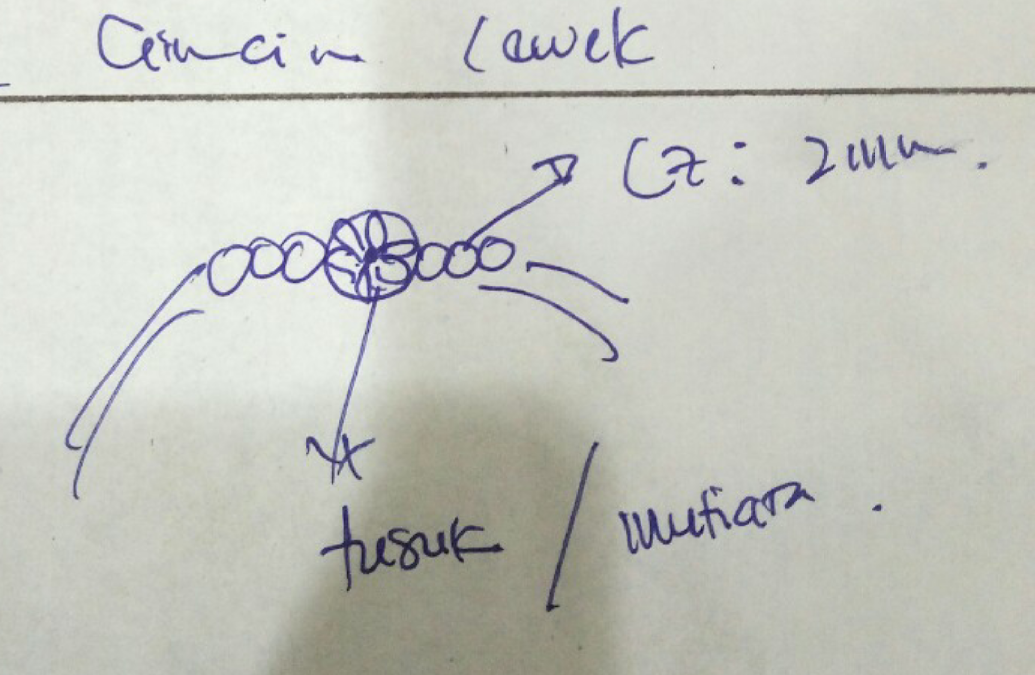 Cincin Cewek
Cz: 2mm.
tusuk / mutiara.